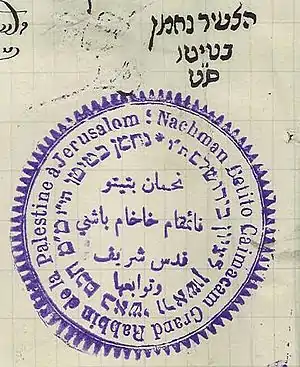 הצעיר נחמן
בטיטו
ס״ט
Nachman Batito Caimacam Grand Rabbin de la Palestine à Jerusalom
נחמן בטיטו חכם באשי וראשון לציון בירושלם ת״ו
نحمان بتيتو
قائمقام خاخام باشي
قدس شريف
وتوابعها